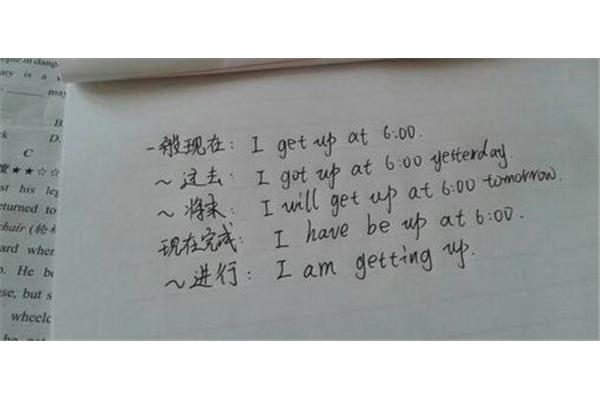 opic in dang
ary is a
may
B
k D.
C
★★☆☆
st his leg
eturned to
chair (轮
ard when
o. He be
se, but s
wheelc
一般现在: I get up at 6:00.
~过去: I got up at 6:00 yesterday.
~将来: I will get up at 6:00 tomorrow.
现在完成: I have be up at 6:00.
~进行: I am getting up.